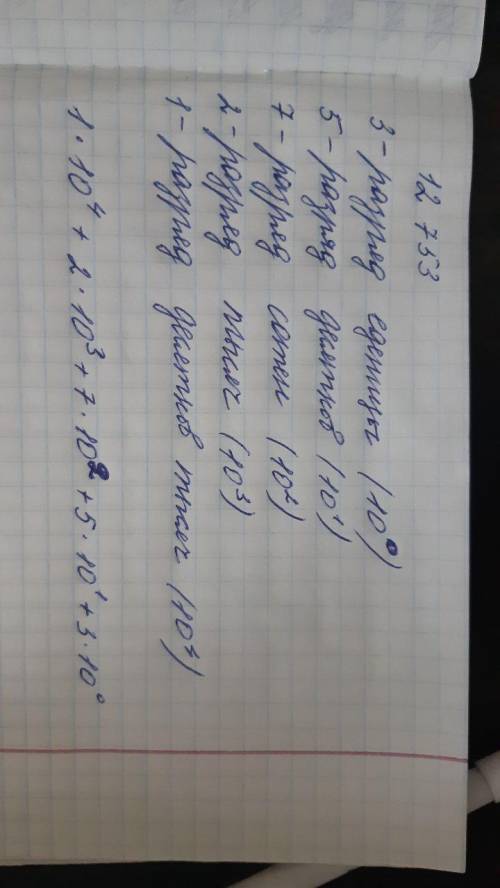 12 753
3 - разряд единиц (10⁰)
5 - разряд десятков (10¹)
7 - разряд сотен (10²)
2 - разряд тысяч (10³)
1 - разряд десятков тысяч (10⁴)
1·10⁴ + 2·10³ + 7·10² + 5·10¹ + 3·10⁰